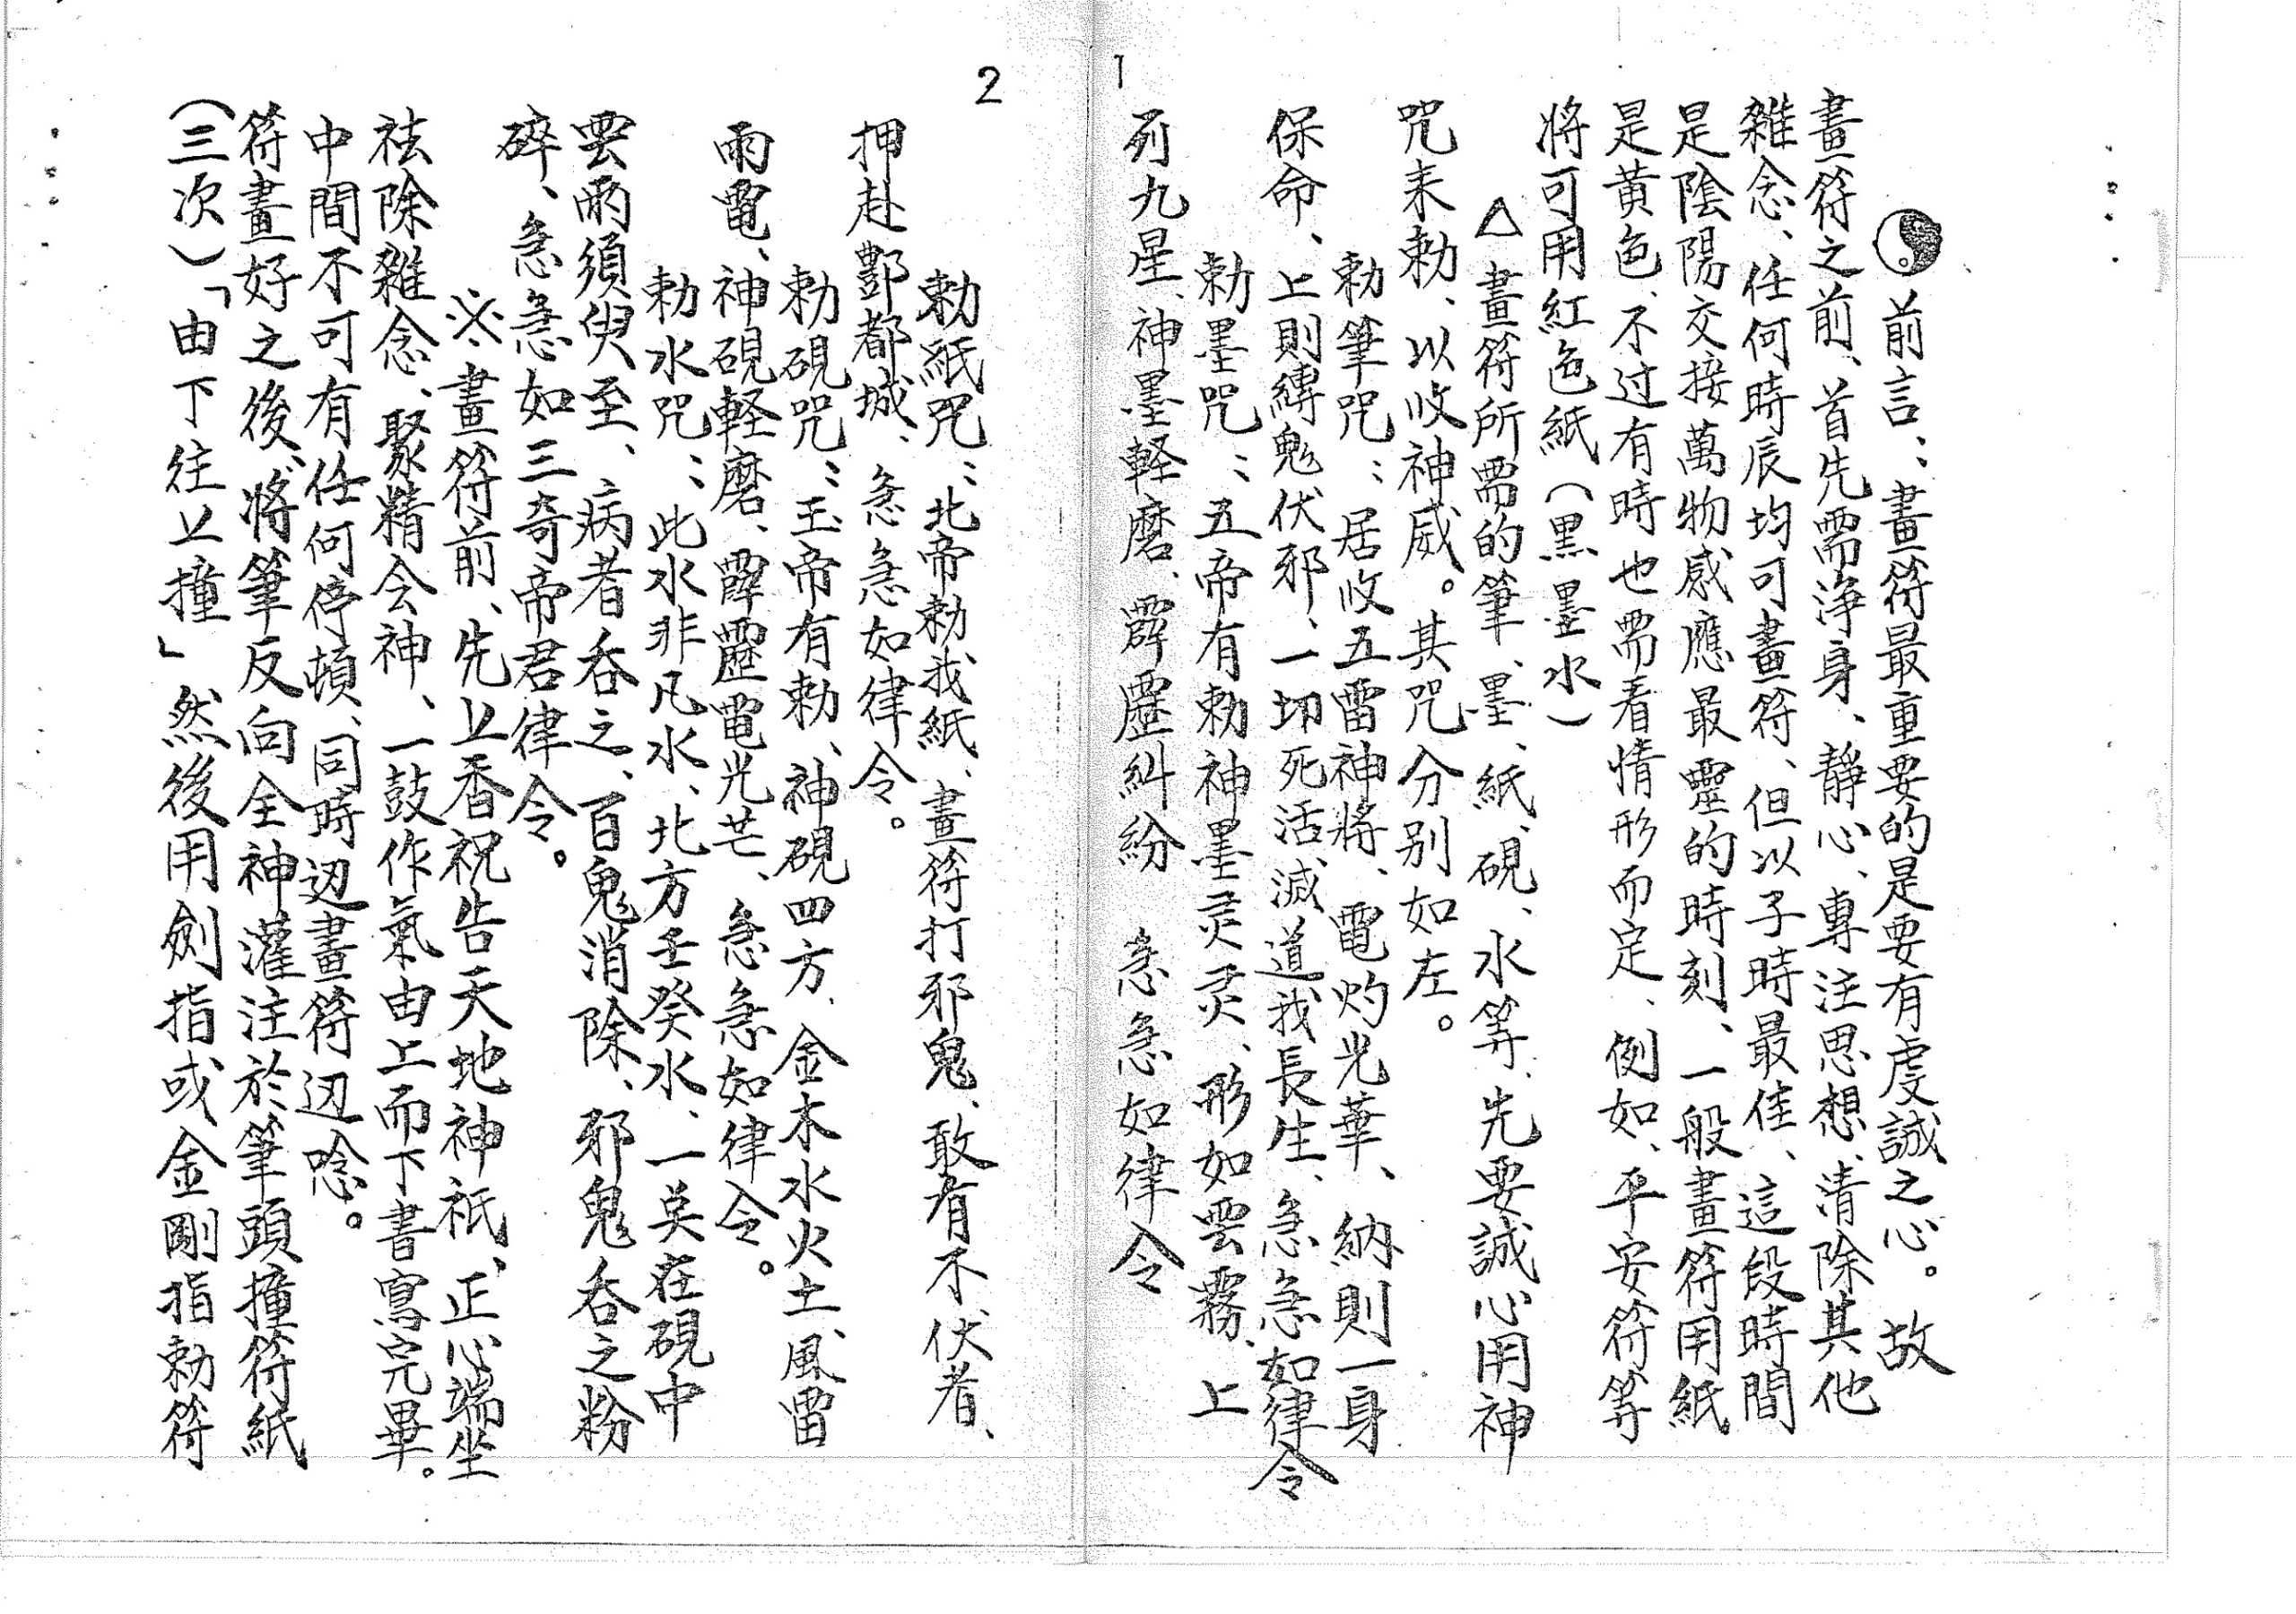 1
前言：畫符最重要的是要有虔誠之心。故
畫符之前、首先需淨身、靜心、專注思想、清除其他
雜念、任何時辰均可畫符、但以子時最佳、這段時間
是陰陽交接萬物感應最靈的時刻、一般畫符用紙
是黃色、不过有時也需看情形而定、例如、平安符等
將可用紅色紙（黑墨水）
△畫符所需的筆、墨、紙、硯、水等、先要誠心用神
咒来勅、以收神威。其咒分别如左。
勅筆咒：居收五雷神將、電灼光華、納則一身
保命、上則縛鬼伏邪、一切死活滅道我長生、急急如律令
勅墨咒：五帝有勅神墨灵灵、形如雲霧、上
列九星、神墨軽磨、霹靂糾紛 急急如律令
2
勅紙咒：北帝勅我紙、畫符打邪鬼、敢有不伏者、
押赴酆都城、急急如律令。
勅硯咒：玉帝有勅、神硯四方、金木水火土、風雷
雨電、神硯軽磨、霹靂電光芒、急急如律令。
勅水咒：此水非凡水、北方壬癸水、一点在硯中
雲雨須臾至、病者吞之、百鬼消除、邪鬼吞之粉
碎、急急如三奇帝君律令。
※畫符前、先上香祝告天地神祇、正心端坐
祛除雜念、聚精会神、一鼓作氣由上而下書寫完畢。
中間不可有任何停頓、同時边畫符边唸。
符畫好之後、將筆反向全神灌注於筆頭撞符紙
（三次）「由下往上撞」然後用劍指或金剛指勅符